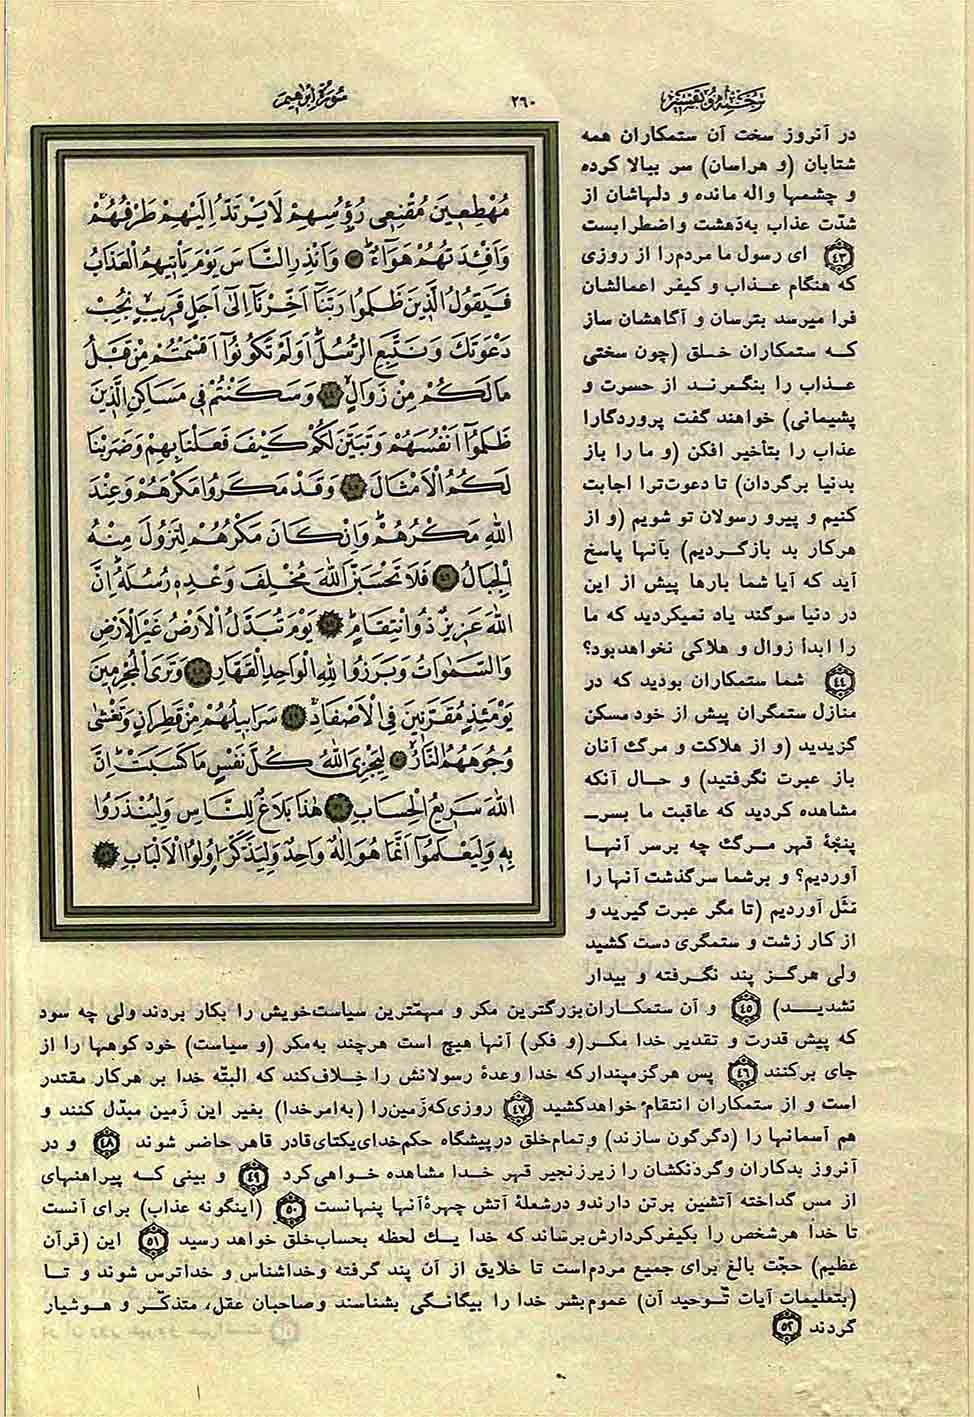 ترجمه و تفسیر
۲۶۰
سورة ابراهیم
مُهْطِعِينَ مُقْنِعِي رُؤُسِهِمْ لَا يَرْتَدُّ اِلَيْهِمْ طَرْفُهُمْ
وَاَفْئِدَتُهُمْ هَوَآءٌ ٤٣ وَاَنْذِرِ النَّاسَ يَوْمَ يَأْتِيهِمُ الْعَذَابُ
فَيَقُولُ الَّذِينَ ظَلَمُوا رَبَّنَآ اَخِّرْنَآ اِلٰى اَجَلٍ قَرِيبٍ نُجِبْ
دَعْوَتَكَ وَنَتَّبِعِ الرُّسُلَ اَوَلَمْ تَكُونُوٓا اَقْسَمْتُمْ مِنْ قَبْلُ
مَا لَكُمْ مِنْ زَوَالٍ ٤٤ وَسَكَنْتُمْ فِي مَسَاكِنِ الَّذِينَ
ظَلَمُوٓا اَنْفُسَهُمْ وَتَبَيَّنَ لَكُمْ كَيْفَ فَعَلْنَا بِهِمْ وَضَرَبْنَا
لَكُمُ الْاَمْثَالَ ٤٥ وَقَدْ مَكَرُوا مَكْرَهُمْ وَعِنْدَ
اللّٰهِ مَكْرُهُمْ وَاِنْ كَانَ مَكْرُهُمْ لِتَزُولَ مِنْهُ
الْجِبَالُ ٤٦ فَلَا تَحْسَبَنَّ اللّٰهَ مُخْلِفَ وَعْدِهِ رُسُلَهُ اِنَّ
اللّٰهَ عَزِيزٌ ذُو انْتِقَامٍ ٤٧ يَوْمَ تُبَدَّلُ الْاَرْضُ غَيْرَ الْاَرْضِ
وَالسَّمٰوَاتُ وَبَرَزُوا لِلّٰهِ الْوَاحِدِ الْقَهَّارِ ٤٨ وَتَرَى الْمُجْرِمِينَ
يَوْمَئِذٍ مُقَرَّنِينَ فِي الْاَصْفَادِ ٤٩ سَرَابِيلُهُمْ مِنْ قَطِرَانٍ وَتَغْشٰى
وُجُوهَهُمُ النَّارُ ٥٠ لِيَجْزِيَ اللّٰهُ كُلَّ نَفْسٍ مَا كَسَبَتْ اِنَّ
اللّٰهَ سَرِيعُ الْحِسَابِ ٥١ هٰذَا بَلَاغٌ لِلنَّاسِ وَلِيُنْذَرُوا
بِهِ وَلِيَعْلَمُوٓا اَنَّمَا هُوَ اِلٰهٌ وَاحِدٌ وَلِيَذَّكَّرَ اُولُوا الْاَلْبَابِ ٥٢
در آنروز سخت آن ستمکاران همه
شتابان (و هراسان) سر ببالا کرده
و چشمها واله مانده و دلهاشان از
شدّت عذاب به‌دَهشت واضطرابست
٤٣ ای رسول ما مردم‌را از روزی
که هنگام عـذاب و کیفر اعمالشان
فرا میرسد بترسان و آگاهشان ساز
کـه ستمکاران خـلق (چون سختی
عـذاب را بنگـرند از حسرت و
پشیمانی) خواهند گفت پروردگارا
عذاب را بتأخیر افکن (و ما را باز
بدنیا برگردان) تا دعوت‌ترا اجابت
کنیم و پیرو رسولان تو شویم (و از
هرکار بد بازگـردیم) بآنها پاسخ
آید که آیا شما بارها پیش از این
در دنیا سوگند یاد نمیکردید که ما
را ابداً زوال و هلاکی نخواهدبود؟
٤٤ شما ستمکاران بودید که در
منازل ستمگران پیش از خود مسکن
گزیدید (و از هلاکت و مرگ آنان
باز عبرت نگرفتید) و حـال آنکه
مشاهده کردید که عاقبت ما بسرـ
پنجۀ قهر مـرگ چه برسر آنهـا
آوردیم؟ و برشما سرگذشت آنها را
مَثَل آوردیم (تا مگر عبرت گیرید و
از کار زشت و ستمگری دست کشید
ولی هرگـز پند نگـرفته و بیدار
نشدیـد) ٤٥ و آن ستمکـاران‌بزرگترین مکر و مهمّترین سیاست‌خویش را بکار بردند ولی چه سود
که پیش قدرت و تقدیر خدا مکـر(و فکر) آنها هیچ است هرچند به‌مکر (و سیاست) خود کوهها را از
جای برکنند ٤٦ پس هرگزمپندارکه خدا وعدۀ رسولانش را خِلاف‌کند که البتّه خدا بر هرکار مقتدر
است و از ستمکاران انتقام خواهدکشید ٤٧ روزی‌که‌زَمین‌را (به‌امرخدا) بغیر این زَمین مبدّل کنند و
هم آسمانها را (دگرگون سازند) وتمام‌خلق درپیشگاه حکم‌خدای‌یکتای‌قادر قاهر حاضر شوند ٤٨ و در
آنروز بدکاران وگردنکشان را زیرزنجیر قهر خـدا مشاهده خـواهی‌کرد ٤٩ و بینی کـه پیراهنهای
از مس گداخته آتشین برتن دارندو درشعلۀ آتش چهرۀآنها پنهانست ٥٠ (اینگونه عذاب) برای آنست
تا خدا هرشخص را بکیفرکردارش‌برساند که خدا یـك لحظه بحساب‌خلق خواهد رسید ٥١ این (قرآن
عظیم) حجّت بالغ برای جمیع مردم‌است تا خلایق از آن پند گرفته وخداشناس و خداترس شوند و تـا
(بتعلیمات آیات تـوحید آن) عموم‌بشر خدا را بیگانگـی بشناسند وصاحبان عقل، متذکّـر و هـوشیار
گردند ٥٢